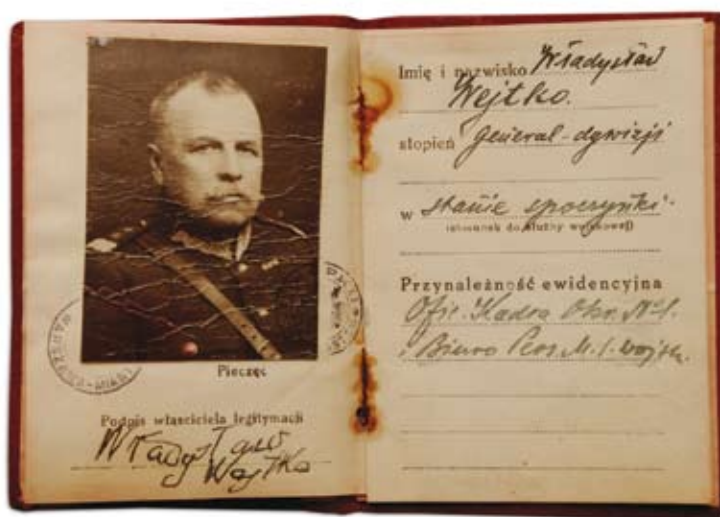 WARSZAWA-MIAST
Pieczęć
Podpis właściciela legitymacji
Władysław
Wejtko
Imię i nazwisko Władysław
Wejtko.
stopień Generał-dywizji
w stanie spoczynku
(stosunek do służby wojskowej)
Przynależność ewidencyjna
Ofic. Kadra Okr. №1.
i Biuro Pers. M. S. Wojsk.